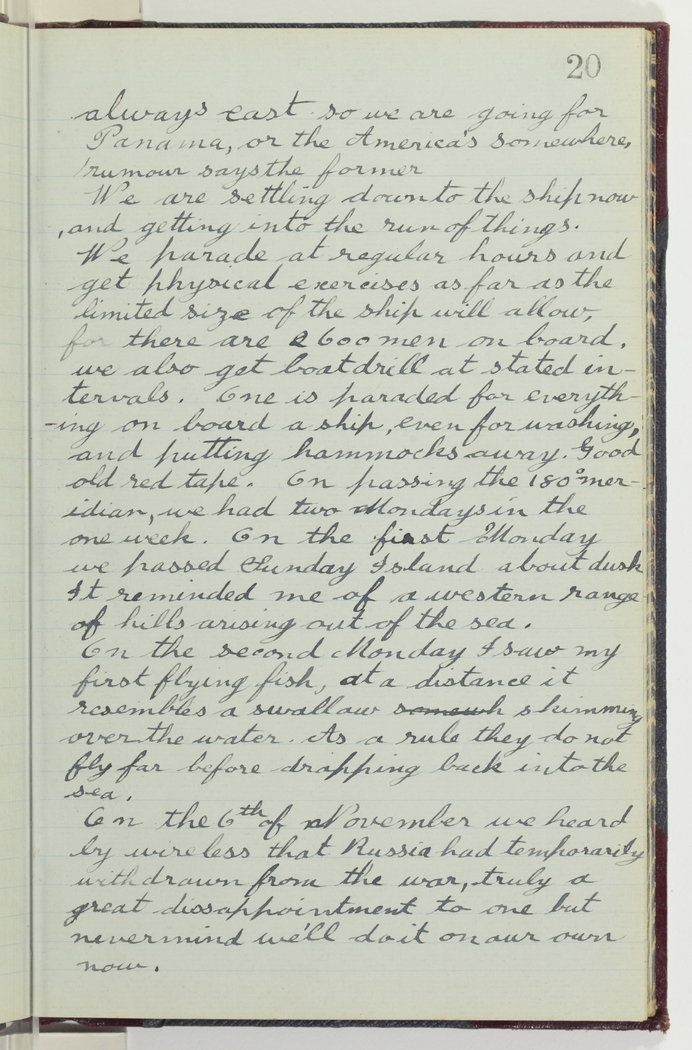 20
always east so we are going for
Panama, or the America's somewhere,
rumour says the former
We are settling down to the ship now
, and getting into the run of things.
We parade at regular hours and
get physical exercises as far as the
limited size of the ship will allow,
for there are 2600 men on board.
we also get boatdrill at stated in-
tervals. One is paraded for everyth-
-ing on board a ship, even for washing,
and putting hammocks away. Good
old red tape. On passing the 180° mer-
idian, we had two Mondays in the
one week. On the first Monday
we passed Sunday Island about dusk
It reminded me of a western range
of hills arising out of the sea.
On the second Monday I saw my
first flying fish, at a distance it
resembles a swallaw somewh skimming
over the water. As a rule they do not
fly far before drapping back into the
sea.
On the 6th of November we heard
by wireless that Russia had temporarily
withdrawn from the war, truly a
great dissappointment to one but
nevermind we'll do it on our own
now.